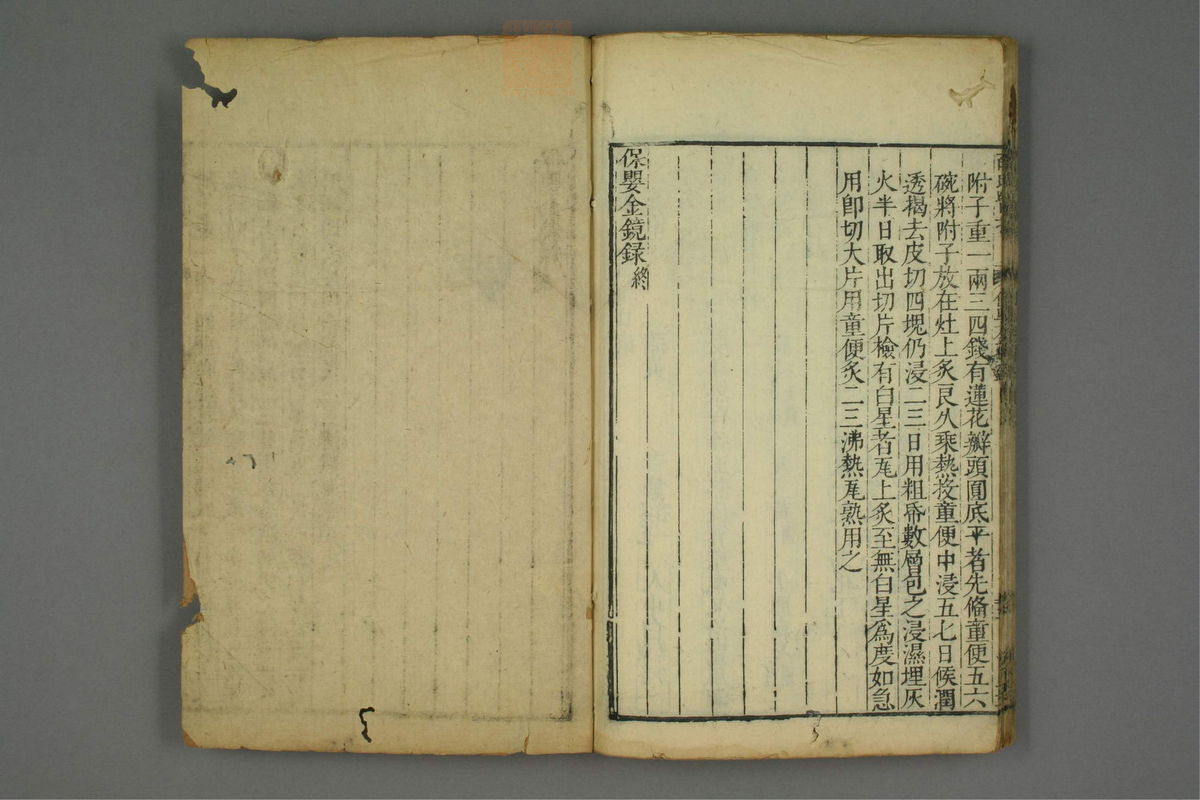 附子重一兩三四錢有蓮花瓣頭圓底平者先俻童便五六
碗將附子放在灶上炙良久乘熱投童便中浸五七日候潤
透揭去皮切四塊仍浸二三日用粗帋數層包之浸濕埋灰
火半日取出切片檢有白星者瓦上炙至無白星爲度如急
用卽切大片用童便炙二三沸熱瓦熟用之
保嬰金鏡録終